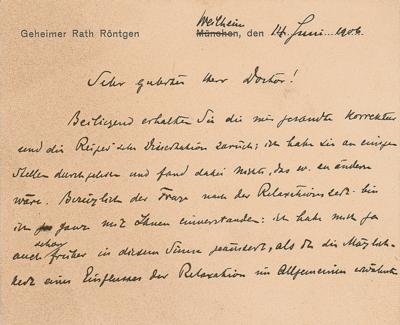 Geheimer Rath Röntgen
Weilheim
München, den 14. Juni 1906.
Sehr geehrter Herr Doctor!
Beiliegend erhalten Sie die mir gesandte Korrektur
und die Reiger'sche Dissertation zurück; ich habe sie an einigen
Stellen durchgelesen und fand dabei nichts, das zu ändern
wäre. Bezüglich der Frage nach der Relaxationszeit bin
ich ganz mit Ihnen einverstanden: ich habe mich ja
schon
auch früher in diesem Sinne geäussert, als Sie die Möglich-
keit eines Einflusses der Relaxation im Allgemeinen erwähnten